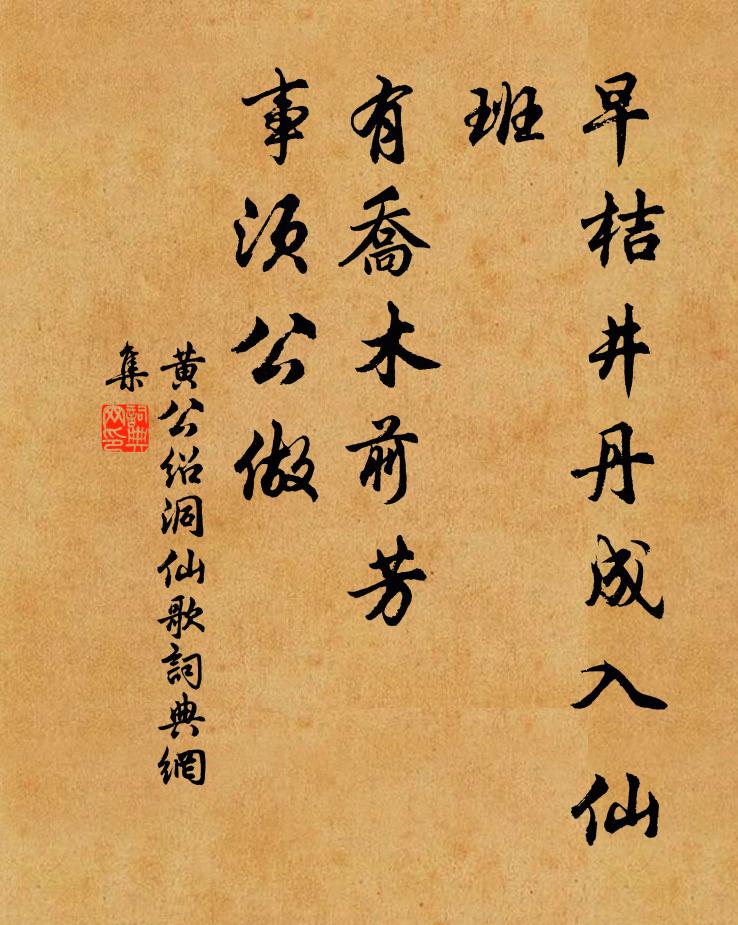 早桔井丹成入仙
班
有喬木前芳
事須公做
黄公绍洞仙歌詞典網
集
詞典
网印